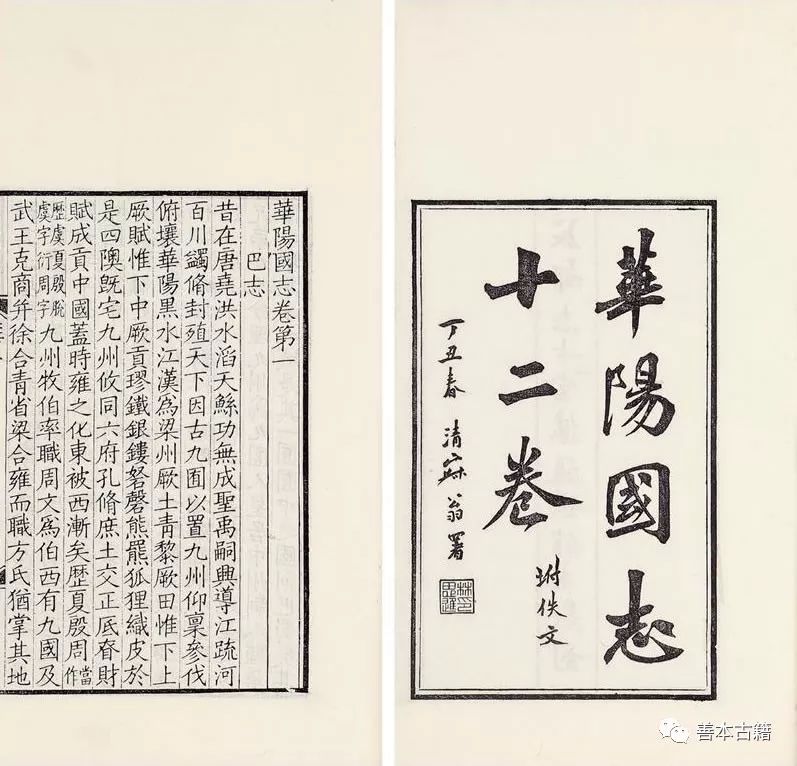 華陽國志
十二卷
坿佚文
丁丑春 清寐翁署
華陽國志卷第一
巴志
昔在唐堯洪水滔天鯀功無成聖禹嗣興導江疏河
百川蠲脩封殖天下因古九囿以置九州仰稟參伐
俯壤華陽黑水江漢爲梁州厥土青黎厥田惟下上
厥賦惟下中厥貢璆鐵銀鏤砮磬熊羆狐狸織皮於
是四隩既宅九州攸同六府孔脩庶土交正厎眘財
賦成貢中國蓋時雍之化東被西漸矣歷夏殷周當作
歷虞夏殷脫虞字衍周字九州牧伯率職周文爲伯西有九國及
武王克商并徐合青省梁合雍而職方氏猶掌其地
善本古籍